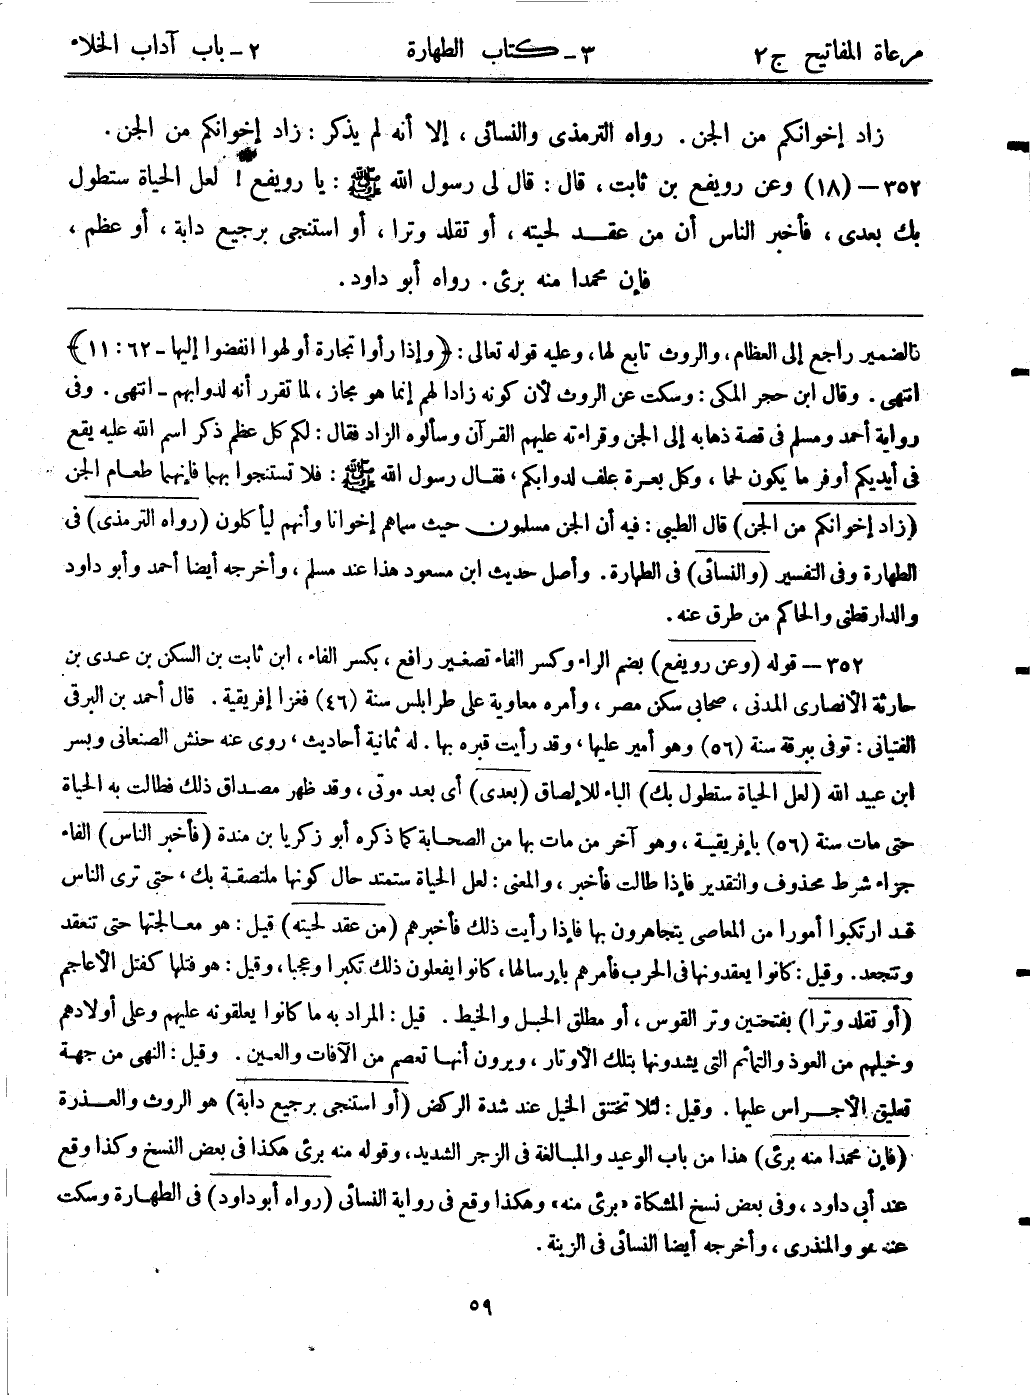 مرعاة المفاتيح ج ٢ ٣ - كتاب الطهارة ٢ - باب آداب الخلاء
زاد إخوانكم من الجن. رواه الترمذى والنسائى، إلا أنه لم يذكر: زاد إخوانكم من الجن.
٣٥٢ - (١٨) وعن رويفع بن ثابت، قال: قال لى رسول الله ﷺ: يا رويفع! لعل الحياة ستطول
بك بعدى، فأخبر الناس أن من عقد لحيته، أو تقلد وترا، أو استنجى برجيع دابة، أو عظم،
فإن محمدا منه برئ. رواه أبو داود.
فالضمير راجع إلى العظام، والروث تابع لها، وعليه قوله تعالى: ﴿وإذا رأوا تجارة أو لهوا انفضوا إليها - ٦٢: ١١﴾
انتهى. وقال ابن حجر المكى: وسكت عن الروث لأن كونه زادا لهم إنما هو مجاز، لما تقرر أنه لدوابهم - انتهى. وفى
رواية أحمد ومسلم فى قصة ذهابه إلى الجن وقراءته عليهم القرآن وسألوه الزاد فقال: لكم كل عظم ذكر اسم الله عليه يقع
فى أيديكم أوفر ما يكون لحما، وكل بعرة علف لدوابكم، فقال رسول الله ﷺ: فلا تستنجوا بهما فإنهما طعام الجن
(زاد إخوانكم من الجن) قال الطيبى: فيه أن الجن مسلمون حيث سماهم إخوانا وأنهم يأكلون (رواه الترمذى) فى
الطهارة وفى التفسير (والنسائى) فى الطهارة. وأصل حديث ابن مسعود هذا عند مسلم، وأخرجه أيضا أحمد وأبو داود
والدارقطنى والحاكم من طرق عنه.
٣٥٢ - قوله (وعن رويفع) بضم الراء وكسر الفاء تصغير رافع، بكسر الفاء، ابن ثابت بن السكن بن عدى بن
حارثة الأنصارى المدنى، صحابى سكن مصر، وأمره معاوية على طرابلس سنة (٤٦) فغزا إفريقية. قال أحمد بن البرقى
الفتيانى: توفى ببرقة سنة (٥٦) وهو أمير عليها، وقد رأيت قبره بها. له ثمانية أحاديث، روى عنه حنش الصنعانى وبسر
ابن عبيد الله (لعل الحياة ستطول بك) الباء للإلصاق (بعدى) أى بعد موتى، وقد ظهر مصداق ذلك فطالت به الحياة
حتى مات سنة (٥٦) بإفريقية، وهو آخر من مات بها من الصحابة كما ذكره أبو زكريا بن مندة (فأخبر الناس) الفاء
جزاء شرط محذوف والتقدير فإذا طالت فأخبر، والمعنى: لعل الحياة ستمتد حال كونها ملتصقة بك، حتى ترى الناس
قد ارتكبوا أمورا من المعاصى يتجاهرون بها فإذا رأيت ذلك فأخبرهم (من عقد لحيته) قيل: هو معالجتها حتى تنعقد
وتتجعد. وقيل: كانوا يعقدونها فى الحرب فأمرهم بإرسالها، كانوا يفعلون ذلك تكبرا وعجبا، وقيل: هو فتلها كفتل الأعاجم
(أو تقلد وترا) بفتحتين وتر القوس، أو مطلق الحبل والخيط. قيل: المراد به ما كانوا يعلقونه عليهم وعلى أولادهم
وخيلهم من العوذ والتمائم التى يشدونها بتلك الأوتار، ويرون أنها تعصم من الآفات والعين. وقيل: النهى من جهة
تعليق الأجراس عليها. وقيل: لئلا تختنق الخيل عند شدة الركض (أو استنجى برجيع دابة) هو الروث والعذرة
(فإن محمدا منه برئ) هذا من باب الوعيد والمبالغة فى الزجر الشديد، وقوله منه برئ هكذا فى بعض النسخ وكذا وقع
عند أبى داود، وفى بعض نسخ المشكاة «برئ منه» وهكذا وقع فى رواية النسائى (رواه أبو داود) فى الطهارة وسكت
عنه هو والمنذرى، وأخرجه أيضا النسائى فى الزينة.
٥٩